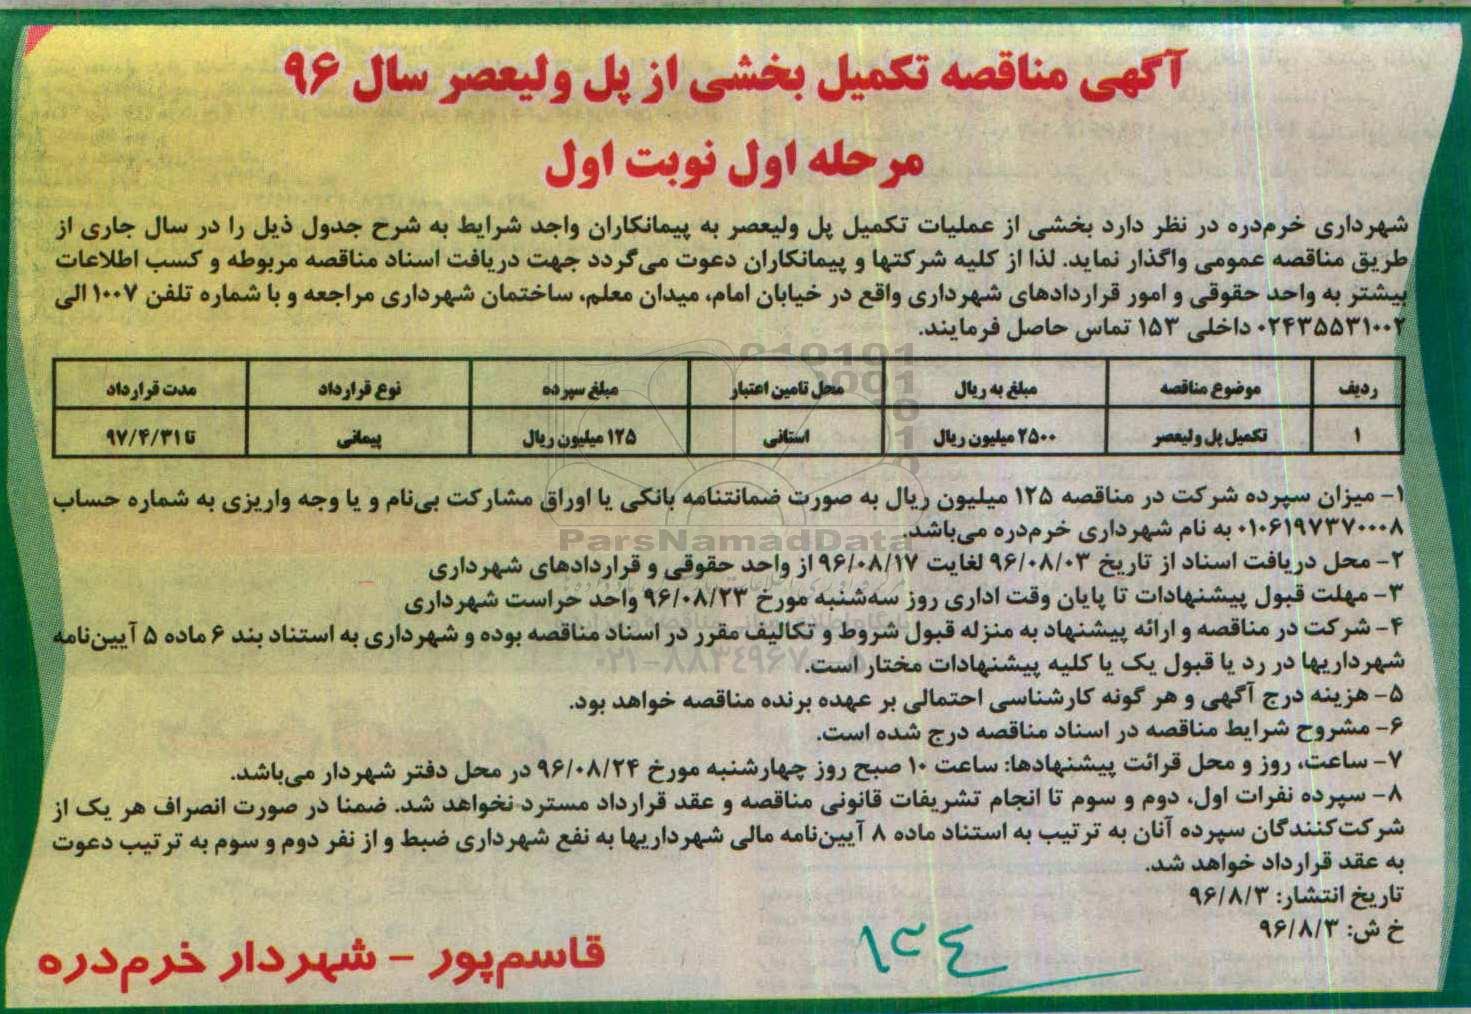 آگهی مناقصه تکمیل بخشی از پل ولیعصر سال ۹۶
مرحله اول نوبت اول
شهرداری خرم‌دره در نظر دارد بخشی از عملیات تکمیل پل ولیعصر به پیمانکاران واجد شرایط به شرح جدول ذیل را در سال جاری از
طریق مناقصه عمومی واگذار نماید. لذا از کلیه شرکتها و پیمانکاران دعوت می‌گردد جهت دریافت اسناد مناقصه مربوطه و کسب اطلاعات
بیشتر به واحد حقوقی و امور قراردادهای شهرداری واقع در خیابان امام، میدان معلم، ساختمان شهرداری مراجعه و با شماره تلفن ۱۰۰۷ الی
۰۲۴۳۵۵۳۱۰۰۲ داخلی ۱۵۳ تماس حاصل فرمایند.
ردیف موضوع مناقصه مبلغ به ریال محل تامین اعتبار مبلغ سپرده نوع قرارداد مدت قرارداد
۱ تکمیل پل ولیعصر ۲۵۰۰ میلیون ریال استانی ۱۲۵ میلیون ریال پیمانی تا ۹۷/۴/۳۱
۱- میزان سپرده شرکت در مناقصه ۱۲۵ میلیون ریال به صورت ضمانتنامه بانکی یا اوراق مشارکت بی‌نام و یا وجه واریزی به شماره حساب
۰۱۰۶۱۹۷۳۷۰۰۰۸ به نام شهرداری خرم‌دره می‌باشد.
ParsNamadData
۲- محل دریافت اسناد از تاریخ ۹۶/۰۸/۰۳ لغایت ۹۶/۰۸/۱۷ از واحد حقوقی و قراردادهای شهرداری
۳- مهلت قبول پیشنهادات تا پایان وقت اداری روز سه‌شنبه مورخ ۹۶/۰۸/۲۳ واحد حراست شهرداری
۴- شرکت در مناقصه و ارائه پیشنهاد به منزله قبول شروط و تکالیف مقرر در اسناد مناقصه بوده و شهرداری به استناد بند ۶ ماده ۵ آیین‌نامه
شهرداریها در رد یا قبول یک یا کلیه پیشنهادات مختار است.
۰۲۱-۸۸۳۴۹۶۷۰-۵
۵- هزینه درج آگهی و هر گونه کارشناسی احتمالی بر عهده برنده مناقصه خواهد بود.
۶- مشروح شرایط مناقصه در اسناد مناقصه درج شده است.
۷- ساعت، روز و محل قرائت پیشنهادها: ساعت ۱۰ صبح روز چهارشنبه مورخ ۹۶/۰۸/۲۴ در محل دفتر شهردار می‌باشد.
۸- سپرده نفرات اول، دوم و سوم تا انجام تشریفات قانونی مناقصه و عقد قرارداد مسترد نخواهد شد. ضمنا در صورت انصراف هر یک از
شرکت‌کنندگان سپرده آنان به ترتیب به استناد ماده ۸ آیین‌نامه مالی شهرداریها به نفع شهرداری ضبط و از نفر دوم و سوم به ترتیب دعوت
به عقد قرارداد خواهد شد.
تاریخ انتشار: ۹۶/۸/۳
خ ش: ۹۶/۸/۳
۱۳۴
قاسم‌پور - شهردار خرم‌دره